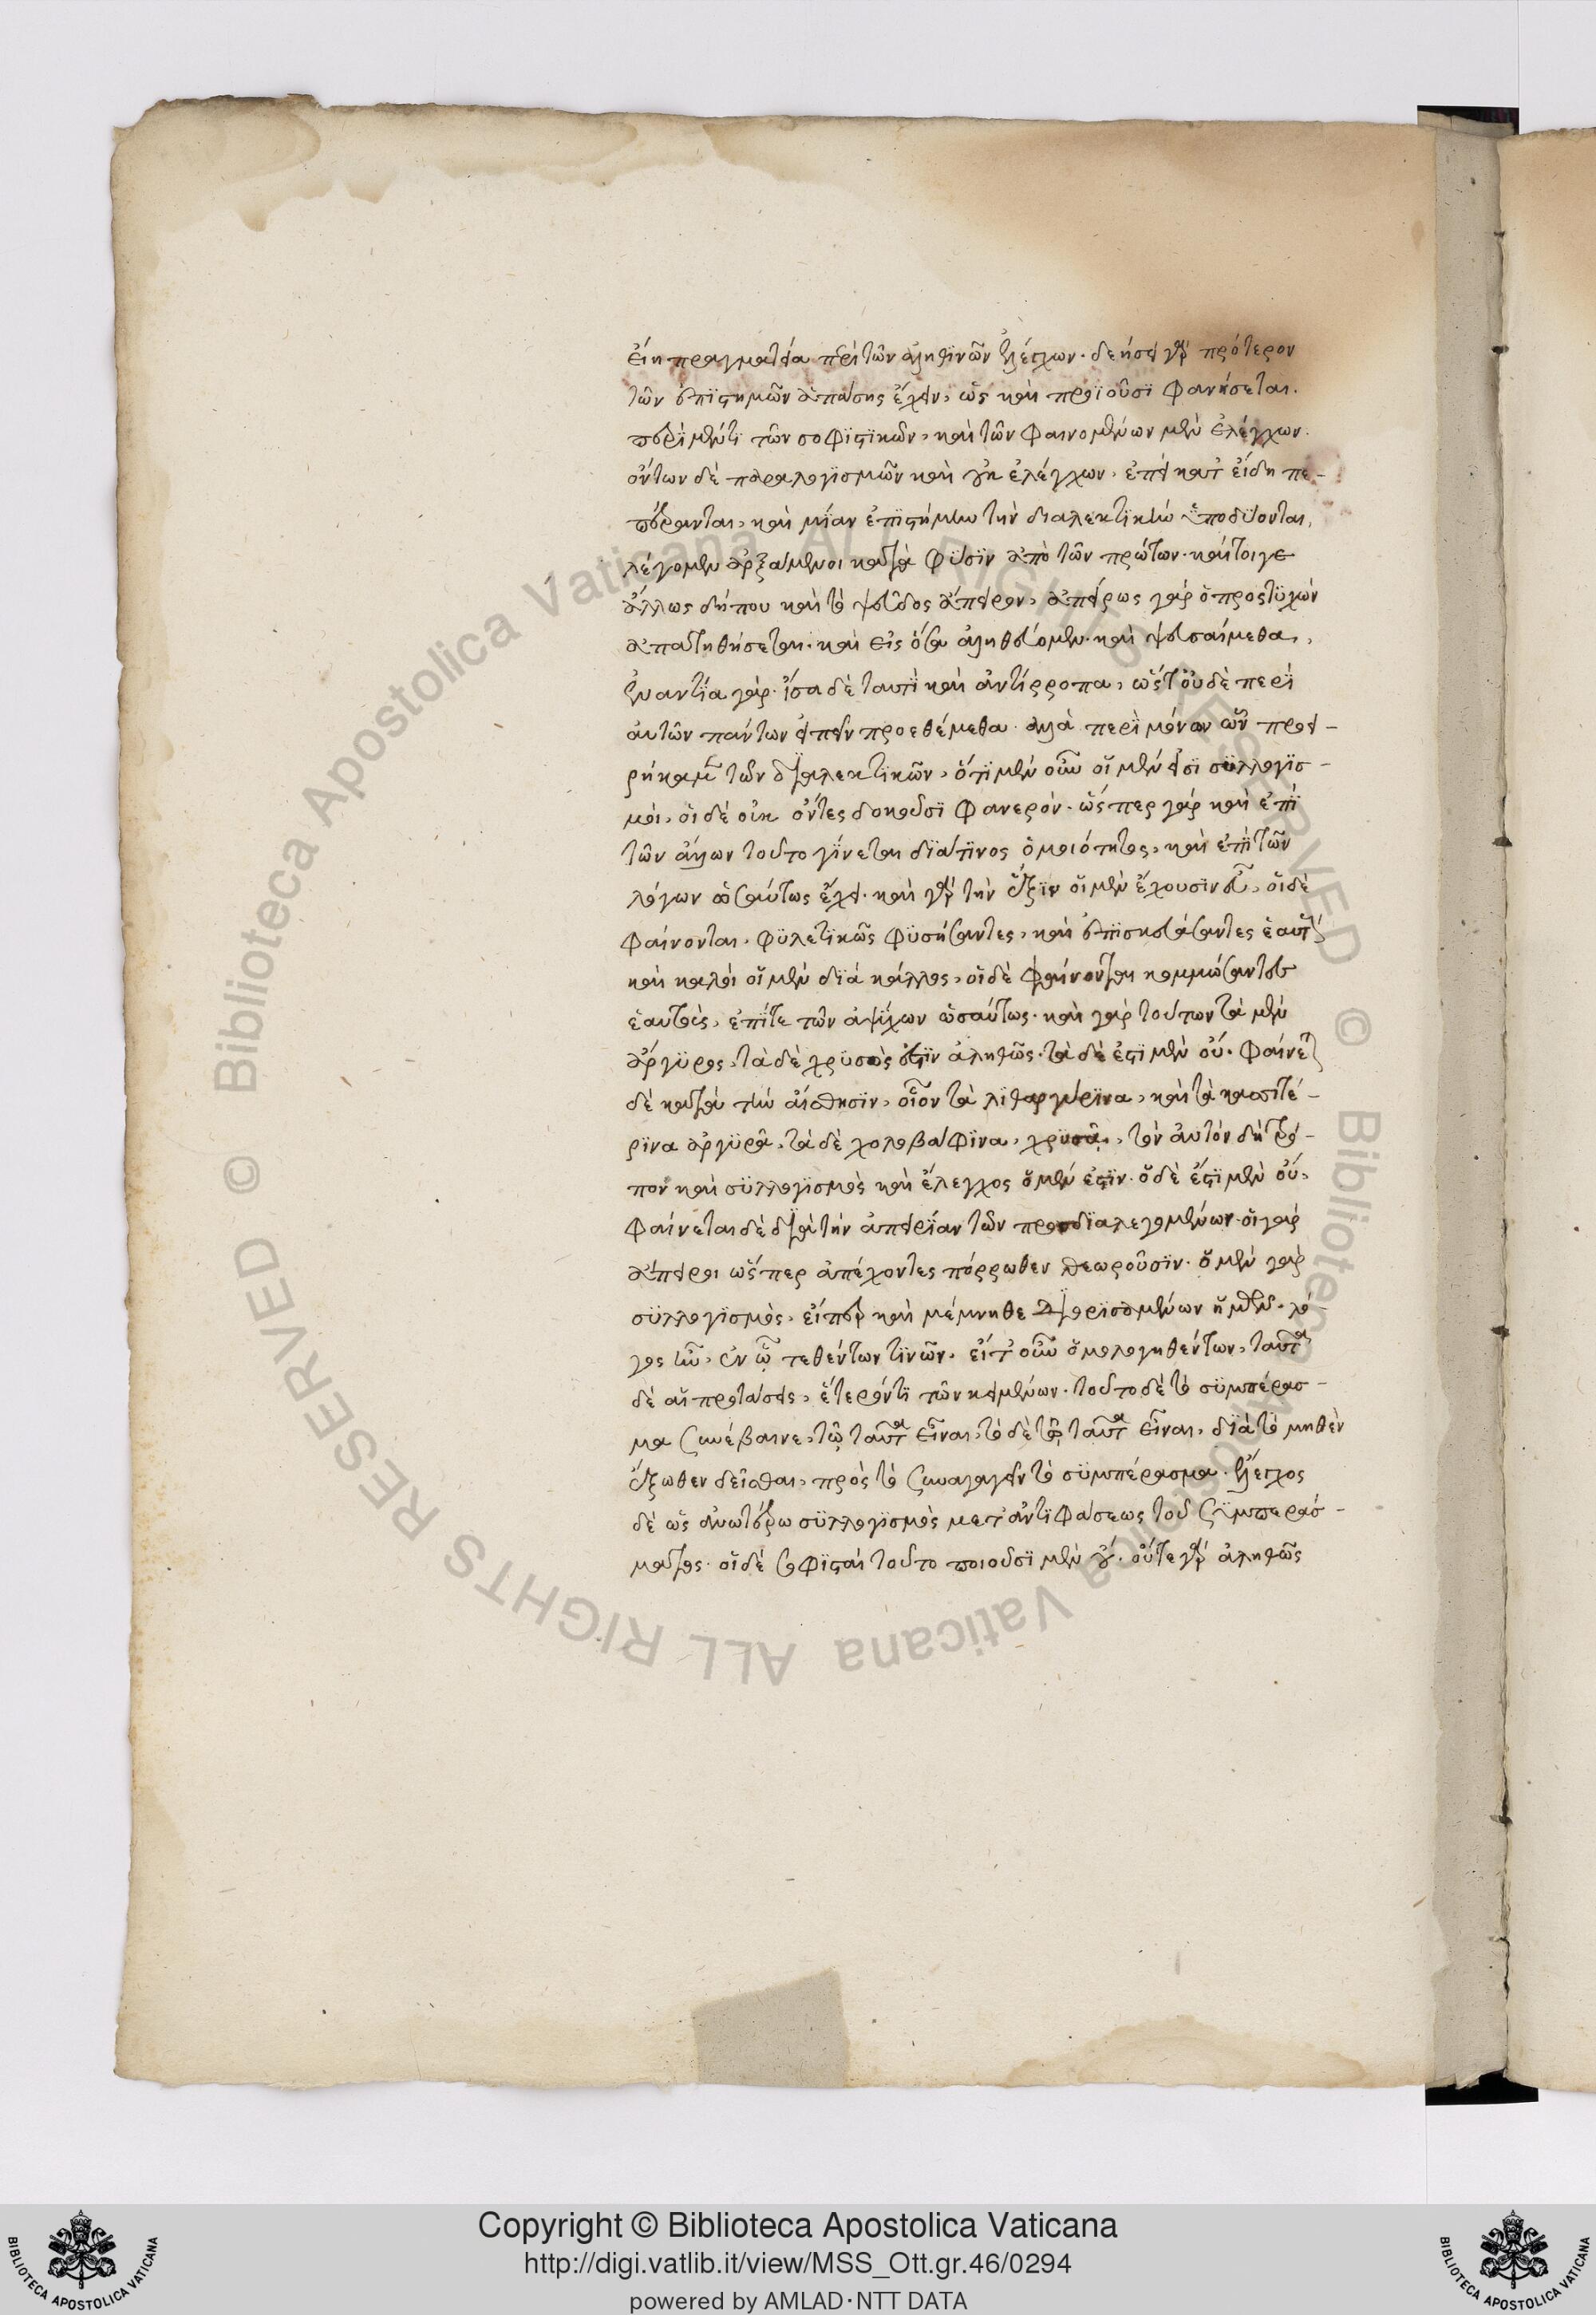 εἴη πραγματεία περὶ τῶν ἀληθινῶν ἐλέγχων. δεήσει γὰρ πρότερον
τῶν ἐπιστημῶν ἁπάσης ἔχειν, ὡς καὶ προϊοῦσι φανήσεται.
περὶ μέντι τῶν σοφιστικῶν, καὶ τῶν φαινομένων μὲν ἐλέγχων.
ὄντων δὲ παραλογισμῶν καὶ οὐκ ἐλέγχων, ἐπεὶ κατ εἴδη πε-
πέρανται, καὶ μίαν ἐπιστήμην τὴν διαλεκτικὴν ὑποδύονται,
λέγομεν ἀρξάμενοι κατὰ φύσιν ἀπὸ τῶν πρώτων. καίτοιγε
ἄλλως δήπου καὶ τὸ ψεῦδος ἄπειρον, ἀπείρως γὰρ ὁ προστυχὼν
ἀπατηθήσεται. καὶ εἰς ὅσα ἀληθεύομεν. καὶ ψευσαίμεθα,
ἐναντία γὰρ. ἴσα δὲ ταυτὶ καὶ ἀντίρροπα, ὥστ οὐδὲ περὶ
αὐτῶν πάντων εἰπεῖν προεθέμεθα. ἀλλὰ περὶ μόνων ὧν προει-
ρήκαμεν τῶν διαλεκτικῶν, ὅτι μὲν οὖν οἱ μὲν εἰσὶ συλλογισ-
μοι, οἱ δὲ οὐκ ὄντες δοκοῦσι φανερόν. ὥσπερ γὰρ καὶ ἐπὶ
τῶν ἄλλων τοῦτο γίνεται διά τινος ὁμοιότητος, καὶ ἐπὶ τῶν
λόγων ὡσαύτως ἔχει. καὶ γὰρ τὴν ἕξιν οἱ μὲν ἔχουσιν εὖ, οἱ δὲ
φαίνονται, φυλετικῶς φυσήσαντες, καὶ ἐπισκευάσαντες ἑαυτούς
καὶ καλοὶ οἱ μὲν διὰ κάλλος, οἱ δὲ φαίνονται κομμώσαντες
ἑαυτούς, ἐπί τε τῶν ἀψύχων ὡσαύτως. καὶ γὰρ τούτων τὰ μὲν
ἄργυρος, τὰ δὲ χρυσός ἐστιν ἀληθῶς. τὰ δὲ ἔστι μὲν οὔ. φαίνεται
δὲ κατὰ τὴν αἴσθησιν, οἷον τὰ λιθαργύρινα, καὶ τὰ κασσιτέ-
ρινα ἀργυρᾶ, τὰ δὲ χολοβάφινα, χρυσᾶ, τὸν αὐτὸν δὴ τρό-
πον καὶ συλλογισμὸς καὶ ἔλεγχος ὁ μὲν ἔστιν. ὁ δὲ ἔστι μὲν οὔ,
φαίνεται δὲ διὰ τὴν ἀπειρίαν τῶν προσδιαλεγομένων. οἱ γὰρ
ἄπειροι ὥσπερ ἀπέχοντες πόρρωθεν θεωροῦσιν. ὁ μὲν γὰρ
συλλογισμὸς, εἴπερ καὶ μέμνησθε διοριζομένων ἡμῶν. λό-
γος ἦν, ἐν ᾧ τεθέντων τινῶν, εἴτ οὖν ὁμολογηθέντων, ταῦτα
δὲ αἱ προτάσεις, ἕτερόν τι τῶν κειμένων. τοῦτο δὲ τὸ συμπέρασ-
μα συνέβαινε, τῷ ταῦτα εἶναι, τὸ δὲ τῷ ταῦτα εἶναι, διὰ τὸ μηθὲν
ἔξωθεν δεῖσθαι, πρὸς τὸ συναγαγεῖν τὸ συμπέρασμα. ἔλεγχος
δὲ ὡς ἀνωτέρω συλλογισμὸς μετ ἀντιφάσεως τοῦ συμπεράσ-
ματος. οἱ δὲ σοφισταὶ τοῦτο ποιοῦσι μὲν οὔ. οὔτε γὰρ ἀληθῶς
Copyright © Biblioteca Apostolica Vaticana
http://digi.vatlib.it/view/MSS_Ott.gr.46/0294
powered by AMLAD·NTT DATA
BIBLIOTECA APOSTOLICA VATICANA
BIBLIOTECA APOSTOLICA VATICANA
© Biblioteca Apostolica Vaticana ALL RIGHTS RESERVED © Biblioteca Apostolica Vaticana ALL RIGHTS RESERVED